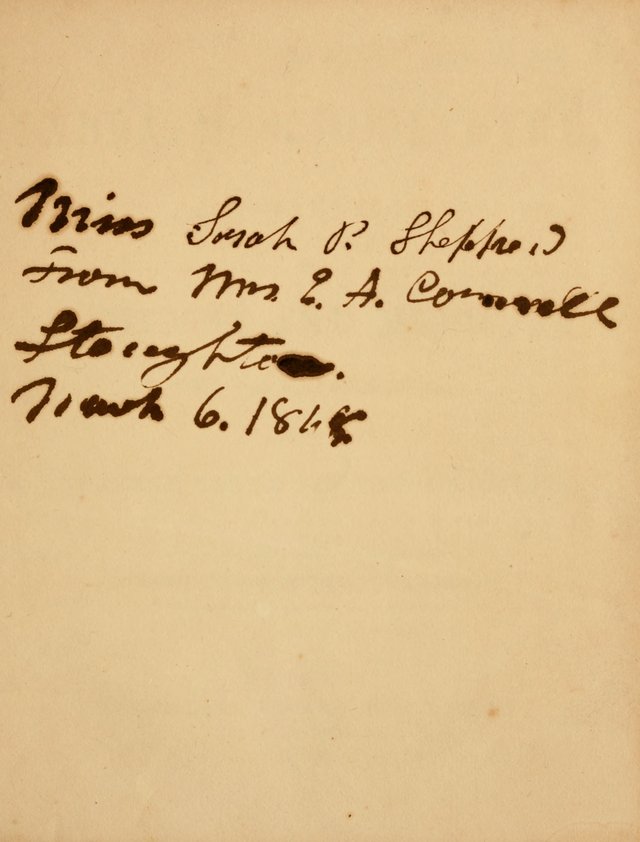 Miss Sarah P. Shepherd
From Mrs. E. A. Cornwell
Stoughton.
March 6. 1868